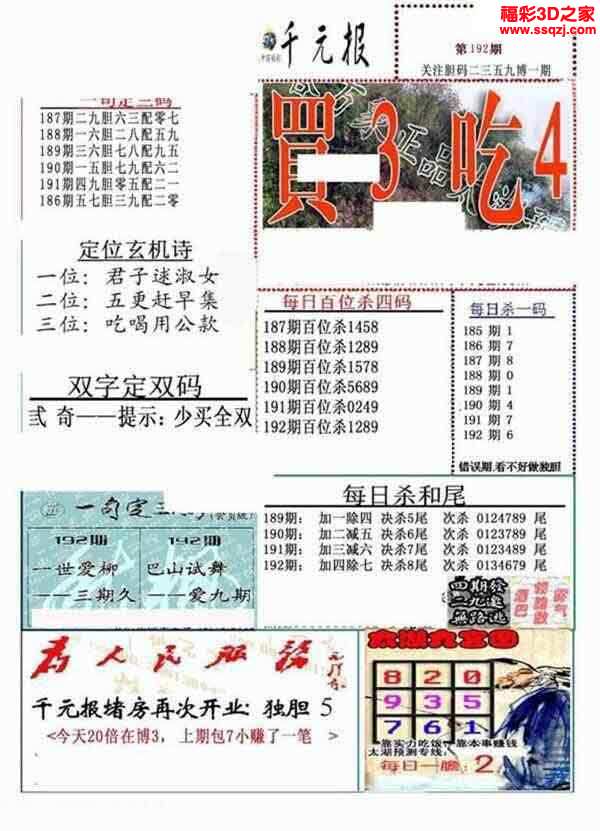 福彩3D之家
www.ssqzj.com
千元报
第192期
关注胆码二三五九博一期
一句定三码
187期二九胆六三配零七
188期一六胆二八配五九
189期三六胆七八配九五
190期一五胆七九配六二
191期四九胆零五配二一
186期五七胆三九配二零
買3吃4
定位玄机诗
一位：君子逑淑女
二位：五更赶早集
三位：吃喝用公款
双字定双码
弍 奇——提示：少买全双
每日百位杀四码
187期百位杀1458
188期百位杀1289
189期百位杀1578
190期百位杀5689
191期百位杀0249
192期百位杀1289
每日杀一码
185 期 1
186 期 7
187 期 8
188 期 0
189 期 1
190 期 4
191 期 7
192 期 6
错误期,看不好做独胆
每日杀和尾
189期： 加一除四 决杀5尾 次杀 0124789 尾
190期： 加二减五 决杀6尾 次杀 0123789 尾
191期： 加三减六 决杀7尾 次杀 0123489 尾
192期： 加四除七 决杀8尾 次杀 0134679 尾
一句定三
192期
192期
一世爱柳
巴山试舞
——三期久
——爱九期
四期發
二九追
無路逃
为人民服务
千元报堵房再次开业：独胆 5
<今天20倍在博3，上期包7小赚了一笔 >
太湖九宫图
8 2 0
9 3 5
7 6 1
靠实力吃饭 靠本事赚钱
太湖预测专线：
每日一胆 2